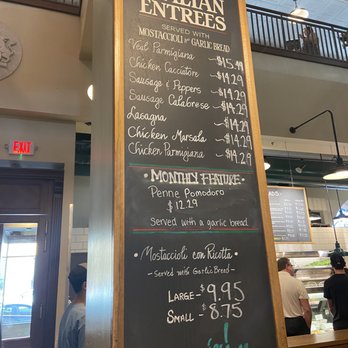 ENTREES
SERVED WITH
MOSTACCIOLI & GARLIC BREAD
Veal Parmigiana ~$15.49
Chicken Cacciatore ~$14.29
Sausage & Peppers ~$14.29
Sausage Calabrese ~$14.29
Lasagna ~$14.29
Chicken Marsala ~$14.29
Chicken Parmigiana ~$14.29
• MONTHLY FEATURE •
Penne Pomodoro
$12.29
Served with a garlic bread
• Mostaccioli con Ricotta •
~Served with Garlic Bread~
LARGE ~ $9.95
SMALL ~ $8.75
EXIT